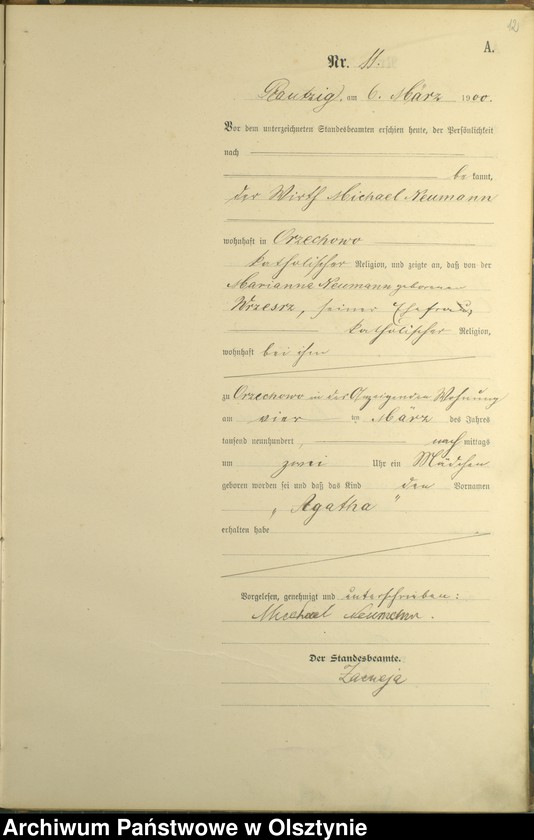 12
A.
Nr. 11.
Rautzig, am 6. März 1900.
Vor dem unterzeichneten Standesbeamten erschien heute, der Persönlichkeit
nach
be kannt,
der Wirth Michael Neumann
wohnhaft in Orzechowo
katholischer Religion, und zeigte an, daß von der
Marianna Neumann geborenen
seiner Ehefrau,
katholischer Religion,
wohnhaft bei ihm
zu Orzechowo in des Anzeigenden Wohnung
am vier ten März des Jahres
tausend neunhundert, nach mittags
um zwei Uhr ein Mädchen
geboren worden sei und daß das Kind den Vornamen
„Agatha"
erhalten habe
Vorgelesen, genehmigt und unterschrieben:
Michael Neumann.
Der Standesbeamte.
Archiwum Państwowe w Olsztynie